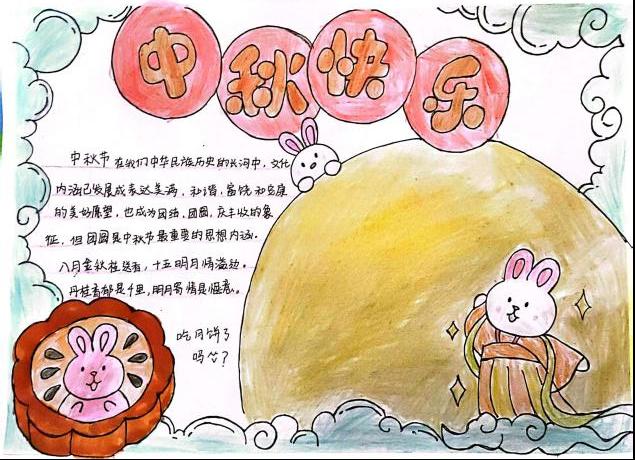 中秋快乐
中秋节在我们中华民族历史的长河中,文化
内涵已发展成表达美满,和谐,富饶和安康
的美好愿望,也成为团结,团圆,庆丰收的象
征,但团圆是中秋节最重要的思想内涵.
八月金秋桂送香,十五明月情溢边。
丹桂香郁是千里,明月寄情是惬意。
吃月饼了
吗^^?